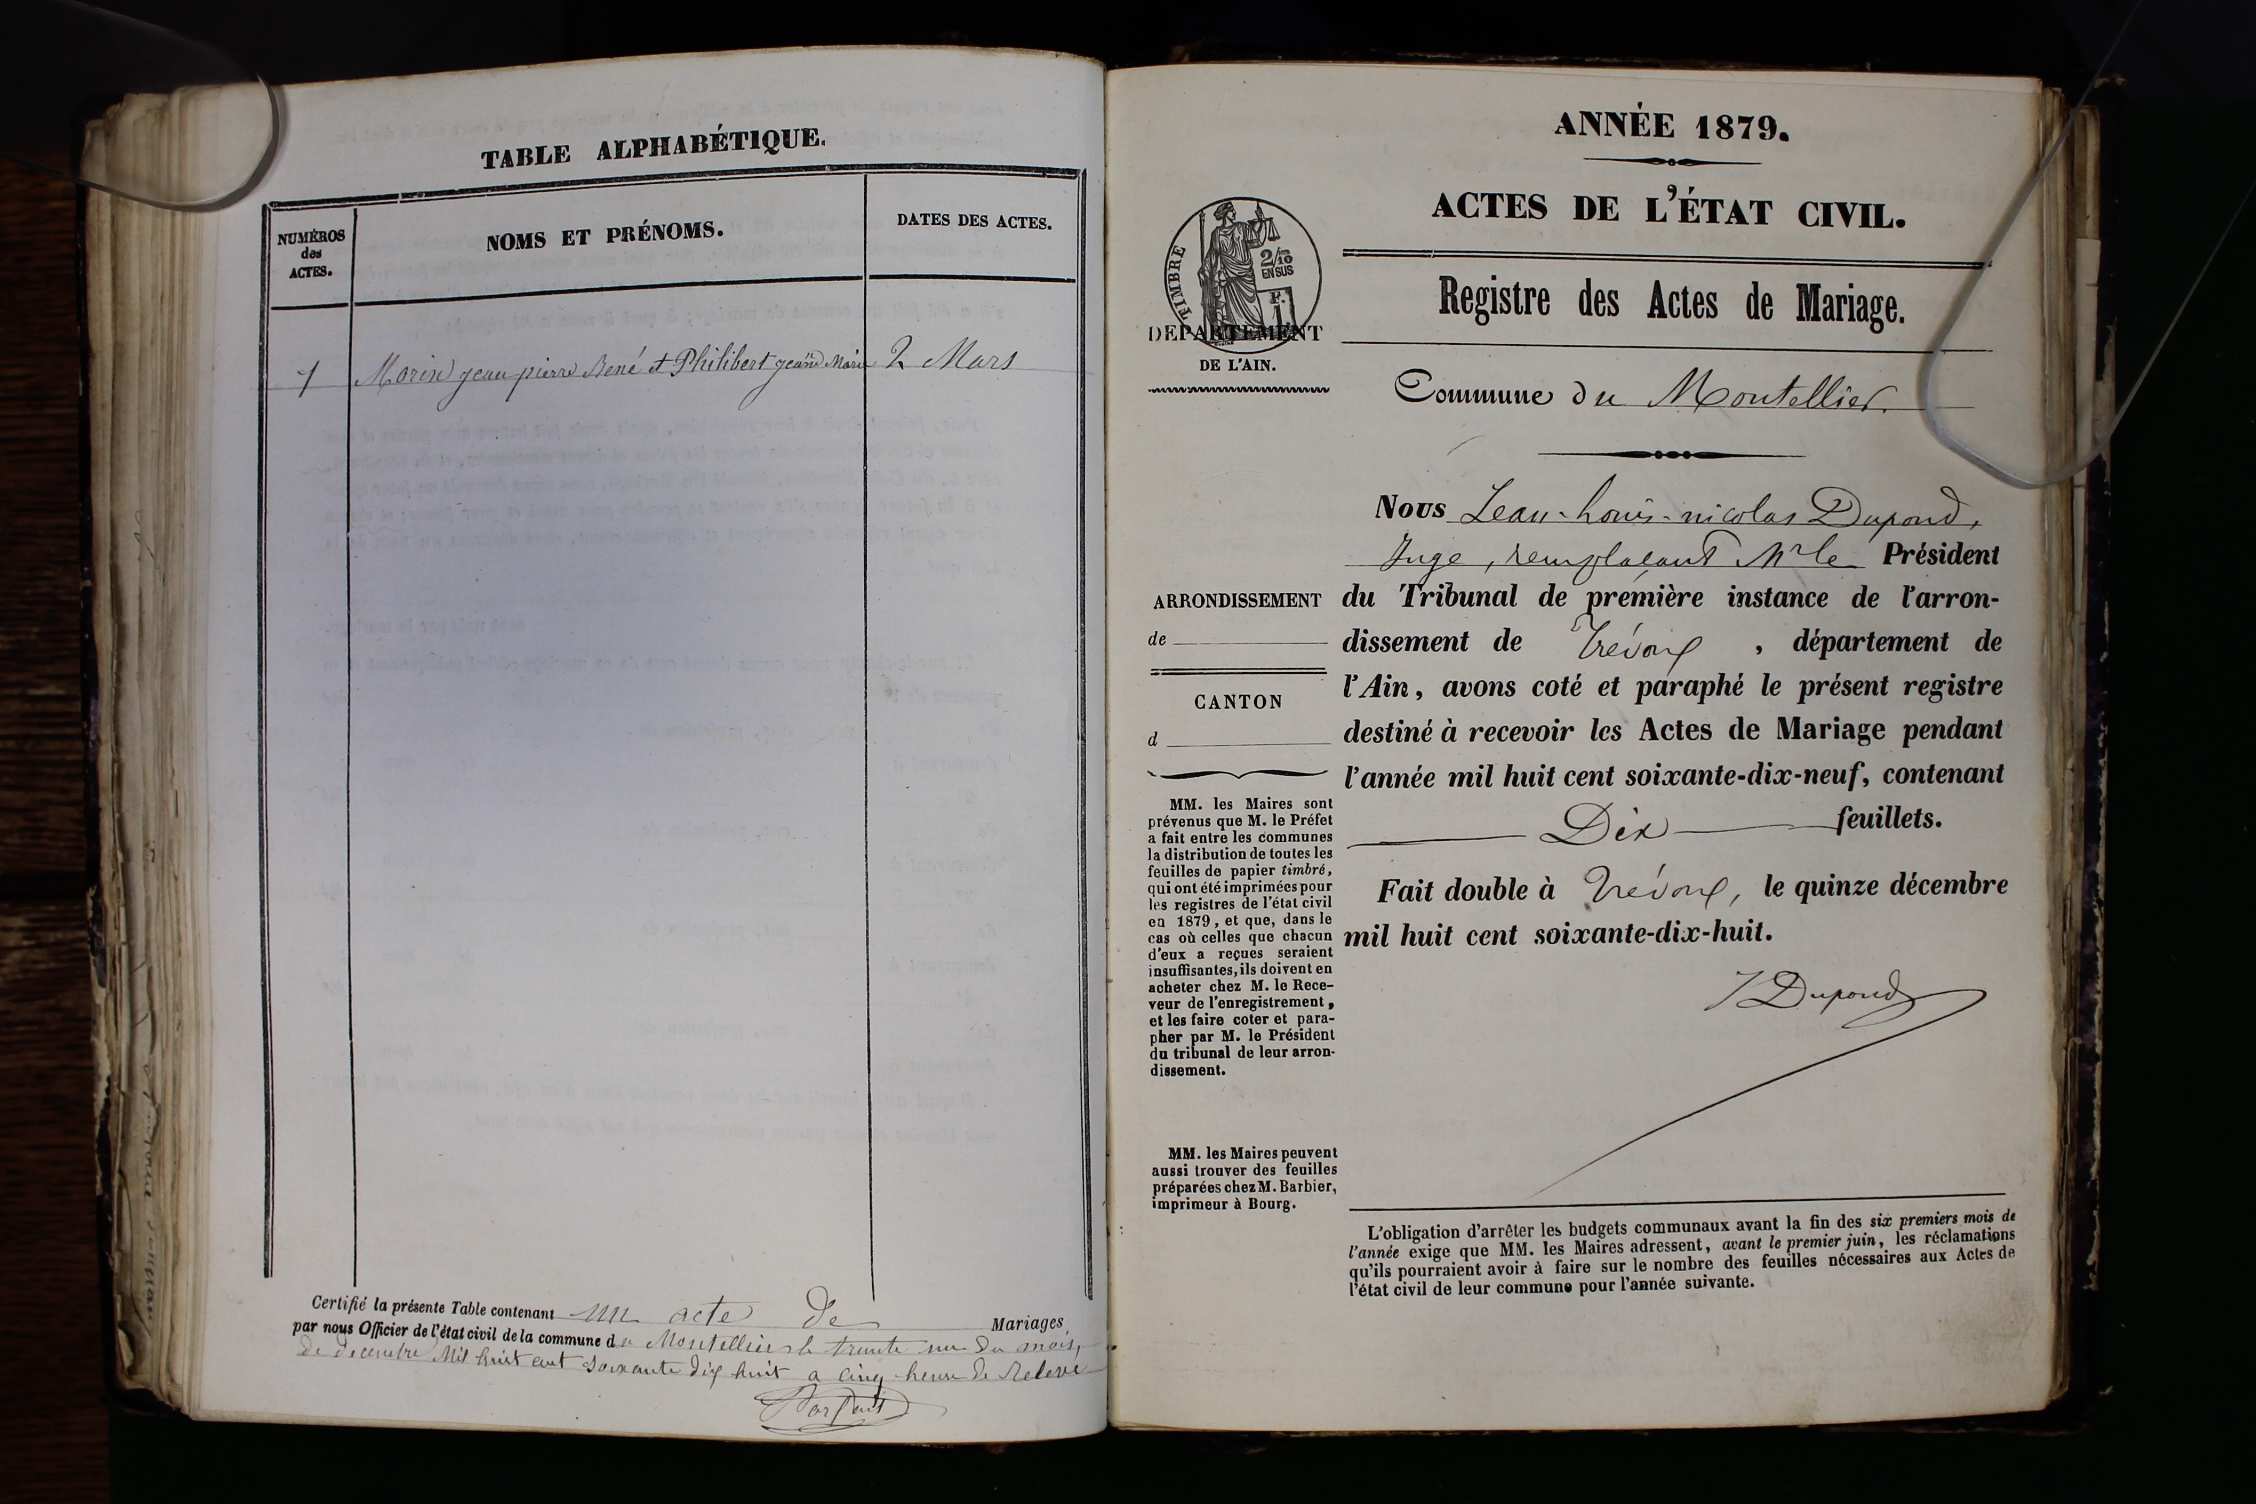 TABLE ALPHABÉTIQUE.
NUMÉROS
des
ACTES.
NOMS ET PRÉNOMS.
DATES DES ACTES.
1 Morin jean pierre René et Philibert jeanne Marie 2 Mars
Certifié la présente Table contenant un acte de Mariages,
par nous Officier de l'état civil de la commune du Montellier le trente un du mois,
de decembre Mil huit cent soixante dix huit a cinq heure de Relevé
ANNÉE 1879.
ACTES DE L'ÉTAT CIVIL.
Registre des Actes de Mariage.
TIMBRE
2/10
EN SUS
DEPARTEMENT
DE L'AIN.
Commune du Montellier.
Nous Jean-Louis-nicolas Dupond,
Juge, remplaçant Mr le Président
du Tribunal de première instance de l'arron-
dissement de Trévoux, département de
l'Ain, avons coté et paraphé le présent registre
destiné à recevoir les Actes de Mariage pendant
l'année mil huit cent soixante-dix-neuf, contenant
Dix feuillets.
Fait double à Trévoux, le quinze décembre
mil huit cent soixante-dix-huit.
J Dupond
ARRONDISSEMENT
de
CANTON
d
MM. les Maires sont
prévenus que M. le Préfet
a fait entre les communes
la distribution de toutes les
feuilles de papier timbré,
qui ont été imprimées pour
les registres de l'état civil
en 1879, et que, dans le
cas où celles que chacun
d'eux a reçues seraient
insuffisantes, ils doivent en
acheter chez M. le Rece-
veur de l'enregistrement,
et les faire coter et para-
pher par M. le Président
du tribunal de leur arron-
dissement.
MM. les Maires peuvent
aussi trouver des feuilles
préparées chez M. Barbier,
imprimeur à Bourg.
L'obligation d'arrêter les budgets communaux avant la fin des six premiers mois de
l'année exige que MM. les Maires adressent, avant le premier juin, les réclamations
qu'ils pourraient avoir à faire sur le nombre des feuilles nécessaires aux Actes de
l'état civil de leur commune pour l'année suivante.